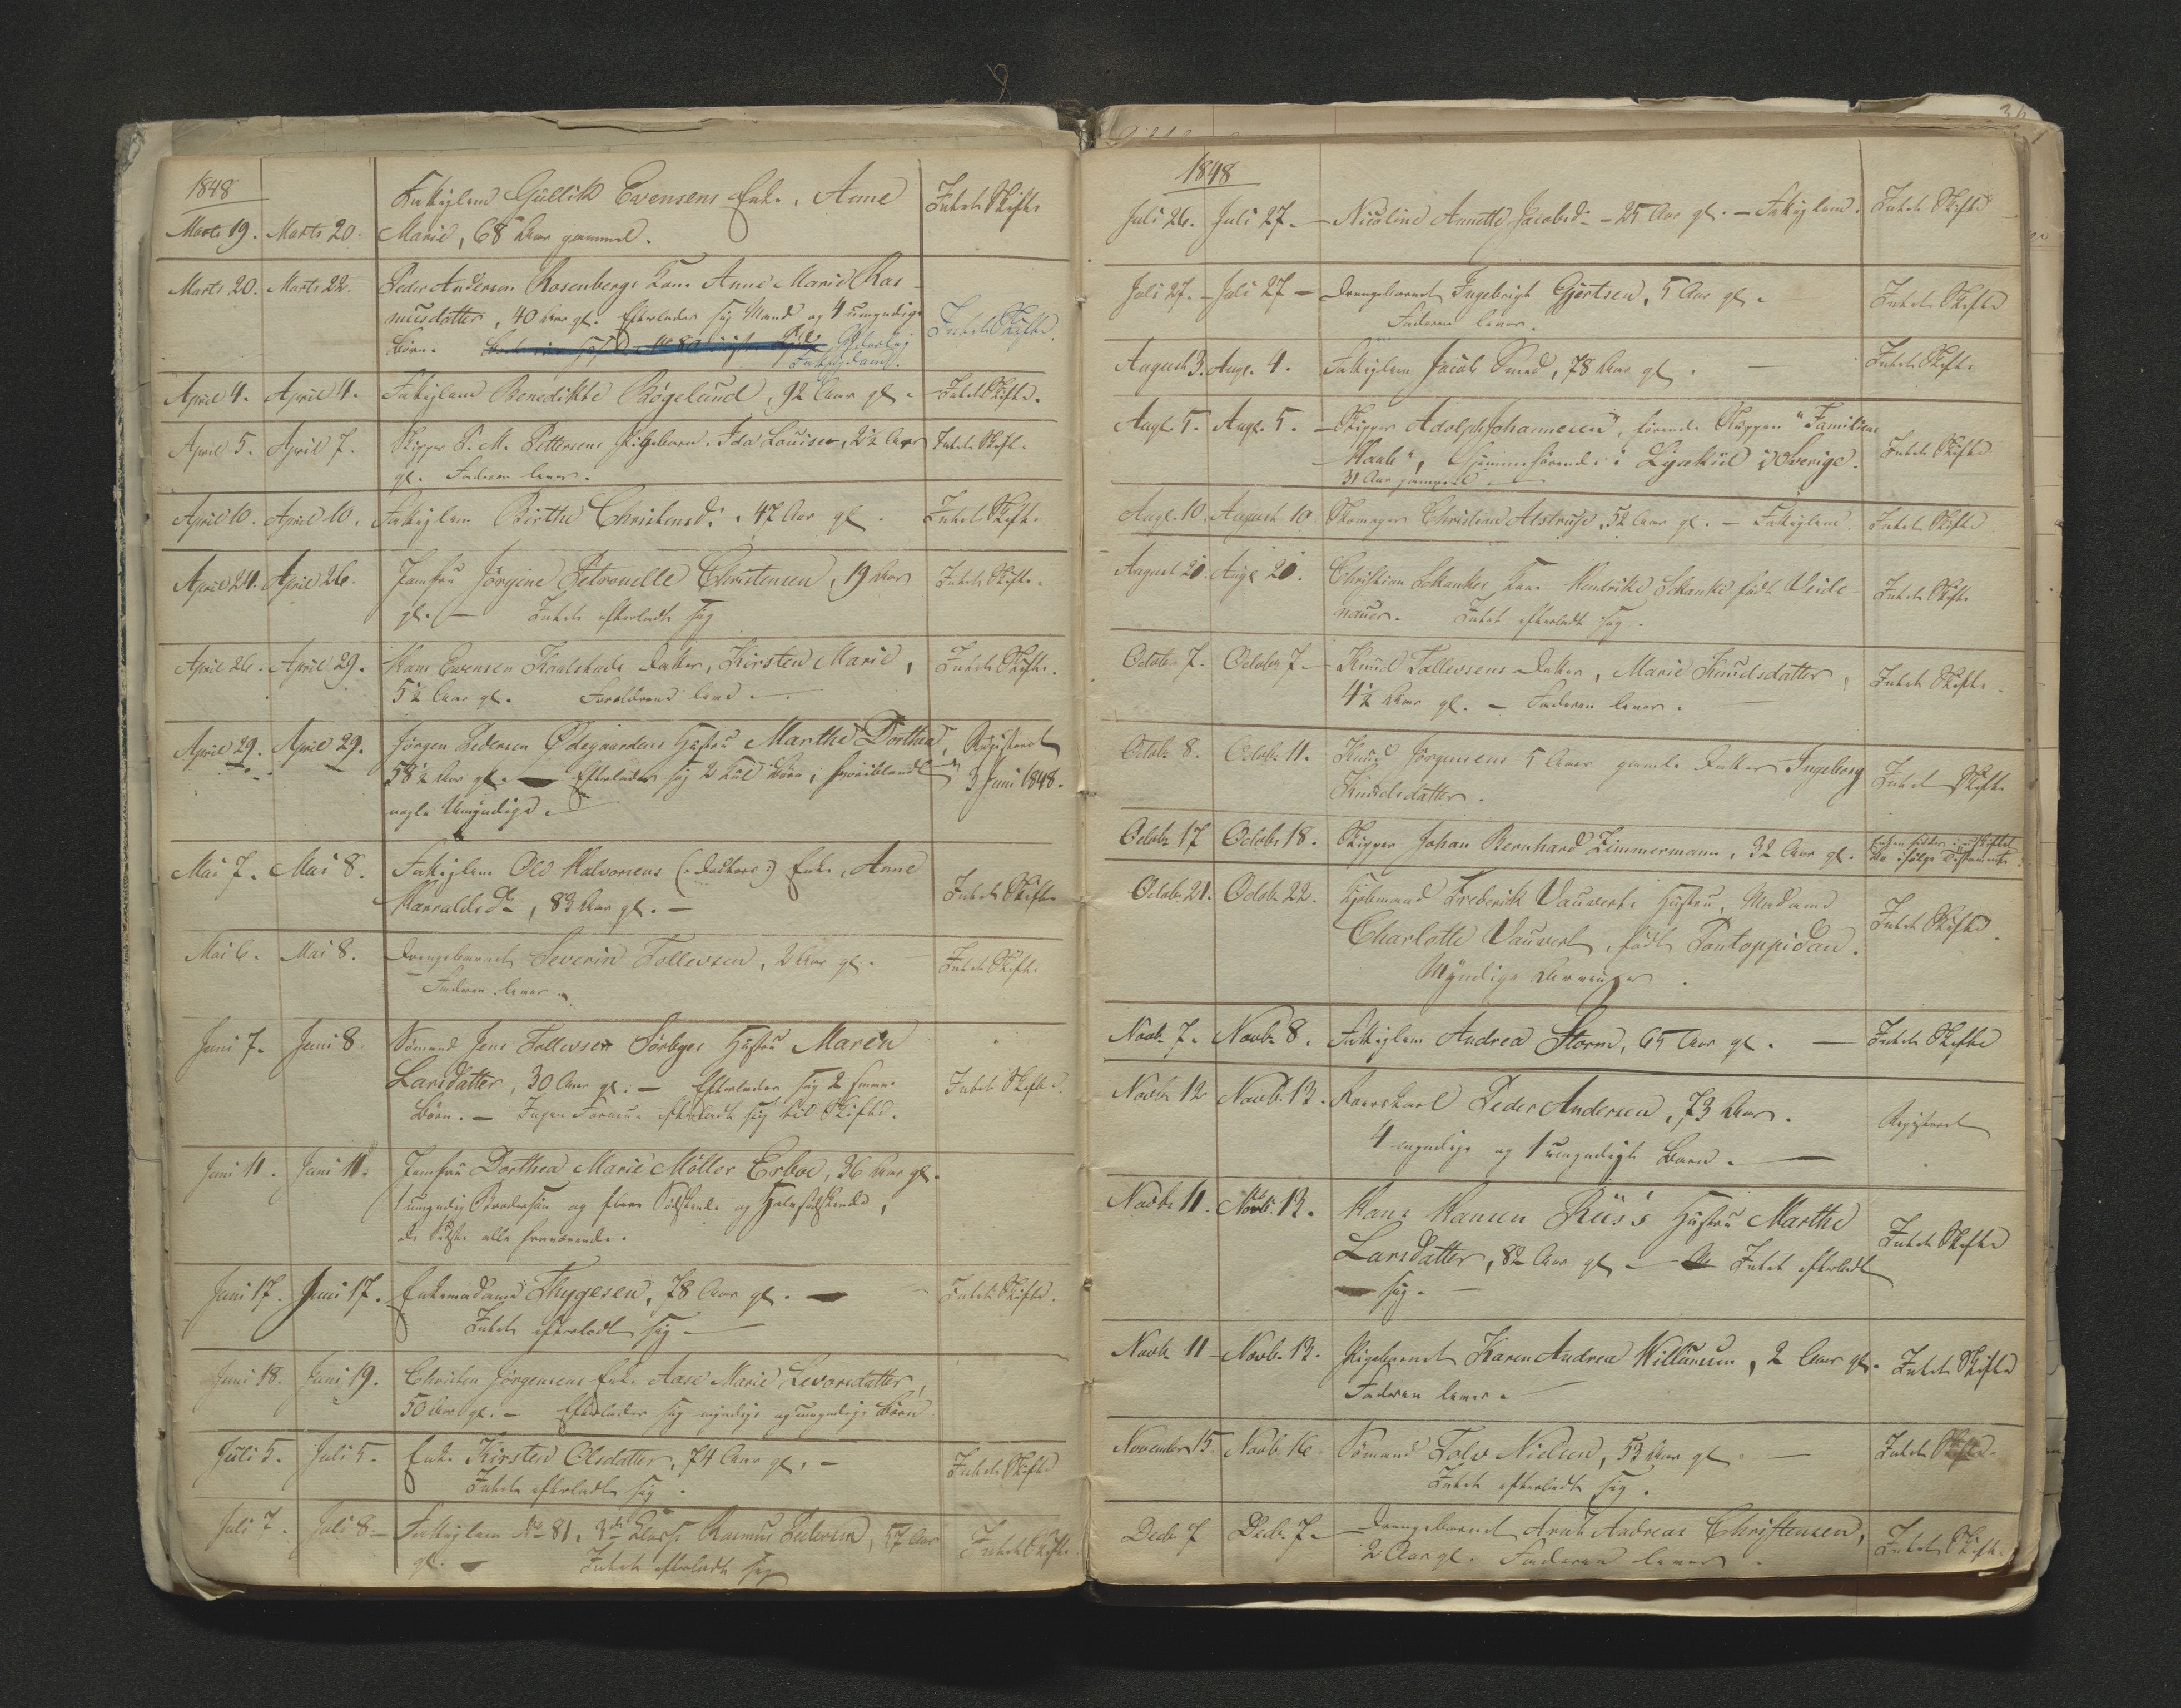 1848
Marts 19. Marts 20. Fattiglem Gullik Evensens Enke, Anne Intet Skifte
Marie, 68 Aar gammel.
Marts 20. Marts 22. Peder Andersen Rosenbergs Kone Anne Marie Ras-
musdatter, 40 Aar gl. Efterlader sig Mand og 4 umyndige Intet Skifte.
Børn.
Fattiglem.
April 4. April 4. Fattiglem Benedikte Bøgelund, 92 Aar gl. Intet Skifte.
April 5. April 7. Skipper P. M. Pettersens Pigebarn, Ida Louise, 2½ Aar Intet Skifte
gl. Faderen lever.
April 10. April 10. Fattiglem Birthe Christensd., 47 Aar gl. Intet Skifte.
April 24. April 26. Jomfru Jørgine Petronelle Christensen, 19 Aar Intet Skifte.
gl. — Intet efterladt sig
April 26. April 29. Hans Evensen Datter, Kirsten Marie, Intet Skifte.
5½ Aar gl. Forældrene leve.
April 29. April 29. Jørgen Pedersen Ødegaardens Hustru Marthe Dorthea, Registreret
58½ Aar gl. — Efterlader sig 2 Kuld Børn, hvoriblandt 3 Juni 1848.
nogle Umyndige.
Mai 7. Mai 8. Fattiglem Ole Halvorsens Enke, Anne
Harralds Dr, 83 Aar gl. — Intet Skifte
Mai 6. Mai 8. Drengebarnet Severin Tollevsen, 2 Aar gl. Intet Skifte
Faderen lever.
Juni 7. Juni 8. Sømand Jens Tollevsen Sørbyes Hustru Maren
Larsdatter, 30 Aar gl. — Efterlader sig 2 smaa Intet Skifte
Børn. — Ingen Formue efterladt sig til Skifte.
Juni 11. Juni 11. Jomfru Dorthea Marie Møller Erboe, 36 Aar gl.
1 umyndig Brodersøn og flere Sødskende og Halvsødskende,
de Sidste alle fraværende.
Juni 17. Juni 17. Enkemadame Thygesen, 78 Aar gl. — Intet Skifte.
Intet efterladt sig —
Juni 18. Juni 19. Christen Jørgensens Enke Aase Marie Levorsdatter,
50 Aar gl. — Efterlader sig myndige og umyndige Børn
Juli 5. Juli 5. Enke Kirsten Olsdatter, 74 Aar gl. — Intet Skifte
Intet efterladt sig.
Juli 7. Juli 8. — Fattiglem No 81, 3die Classe Rasmus Pedersen, 57 Aar Intet Skifte
gl. — Intet efterladt sig
1848
Juli 26. Juli 27. — Nicoline Annette Jacobsd. — 25 Aar gl. — Fattiglem. Intet Skifte
Juli 27. — Juli 27 — Drengebarnet Ingebrigt Gjertsen, 5 Aar gl. Intet Skifte
Faderen lever.
August 3. Aug. 4. Fattiglem Jacob Smed, 78 Aar gl. — Intet Skifte
Aug. 5. Aug. 5. — Skipper Adolph Johannesen, førende Sluppen "Familiens
Haab", hjemmehørende i Lysekiil i Sverige. Intet Skifte
31 Aar gammel. —
Aug. 10. August 10 Skomager Christian Alstrup, 52 Aar gl. — Fattiglem. Intet Skifte
August 20. Aug. 20. Christian Schankes Kone Hendrikke Schanke født Veide-
nauer. Intet efterladt sig. Intet Skifte
October 7. October 7. — Knud Tollevsens Datter, Marie Knudsdatter, Intet Skifte.
4½ Aar gl. — Faderen lever.
Octobr 8. Octobr 11. Knud Jørgensens 5 Aar gamle Datter Ingeborg Intet Skifte
Knudsdatter.
Octobr 17 Octobr 18. Skipper Johan Bernhard Zimmermann, 32 Aar gl.
Octobr 21. Octobr 22. Kjøbmand Frederik Vauverts Hustru, Madame
Charlotte Vauvert, født Pontoppidan. Intet Skifte.
Myndige Arvinger.
Novbr 7. Novbr 8. Fattiglem Andrea Storm, 65 Aar gl. — Intet Skifte
Novbr 12 Novbr 13. Peder Andersen, 73 Aar. Registreret
4 myndige og 1 umyndigt Barn. —
Novbr 11. Novbr 13. Hans Hansen Riis's Hustru Marthe
Larsdatter, 82 Aar gl. — Intet efterladt Intet Skifte
sig. —
Novbr 11 — Novbr 13. Pigebarnet Karen Andrea Willumsen, 2 Aar gl. Intet Skifte
Faderen lever.
November 15. Novbr 16. Sømand Tolv Nielsen, 53 Aar gl. — Intet Skifte.
Intet efterladt sig.
Decbr 7 Decbr 7. — Drengebarnet Arnt Andreas Christensen, Intet Skifte.
2 Aar gl. Faderen lever.